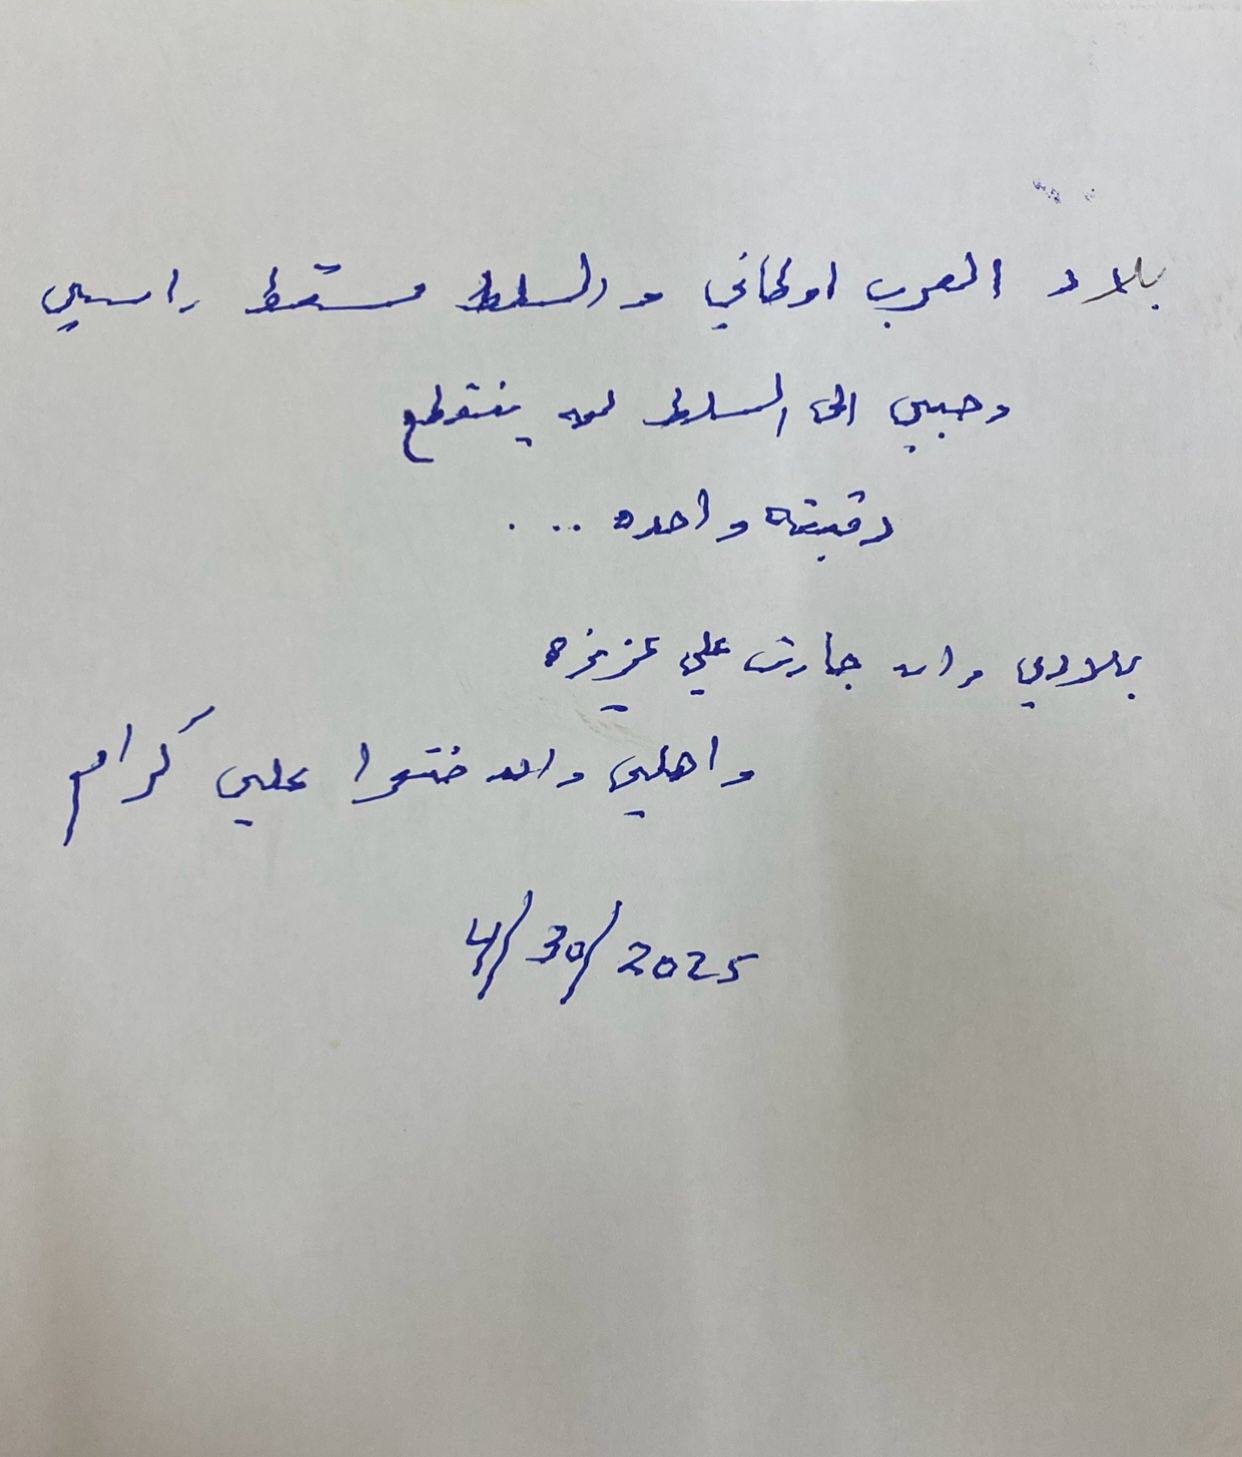 بلاد العرب اوطاني والسلط مسقط راسي
وحبي الى السلط لن ينقطع
دقيقه واحده ...
بلادي وان جارت علي عزيزه
واهلي وان ضنوا علي كرام
4/30/2025